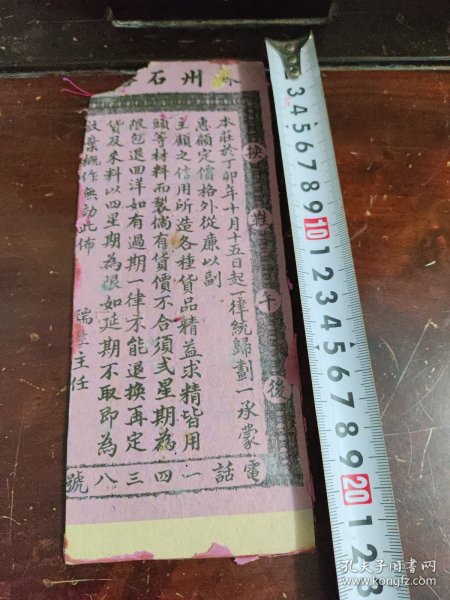 州石
後
本莊於丁卯年十月十五日起一律統歸劃一承蒙
惠顧定價格外從廉以副
主顧之信用所造各種貨品精益求精皆用
頭等材料而製倘有貨價不合須弍星期為
限包退回洋如有過期一律不能退換再定
貨及來料以四星期為限如延期不取即為
放棄概作無効此佈
瑞 主任
電話一四三八號
3 4 5 6 7 8 9 10 1 2 3 4 5 6 7 8 9 20 1 2 3
孔夫子旧书网